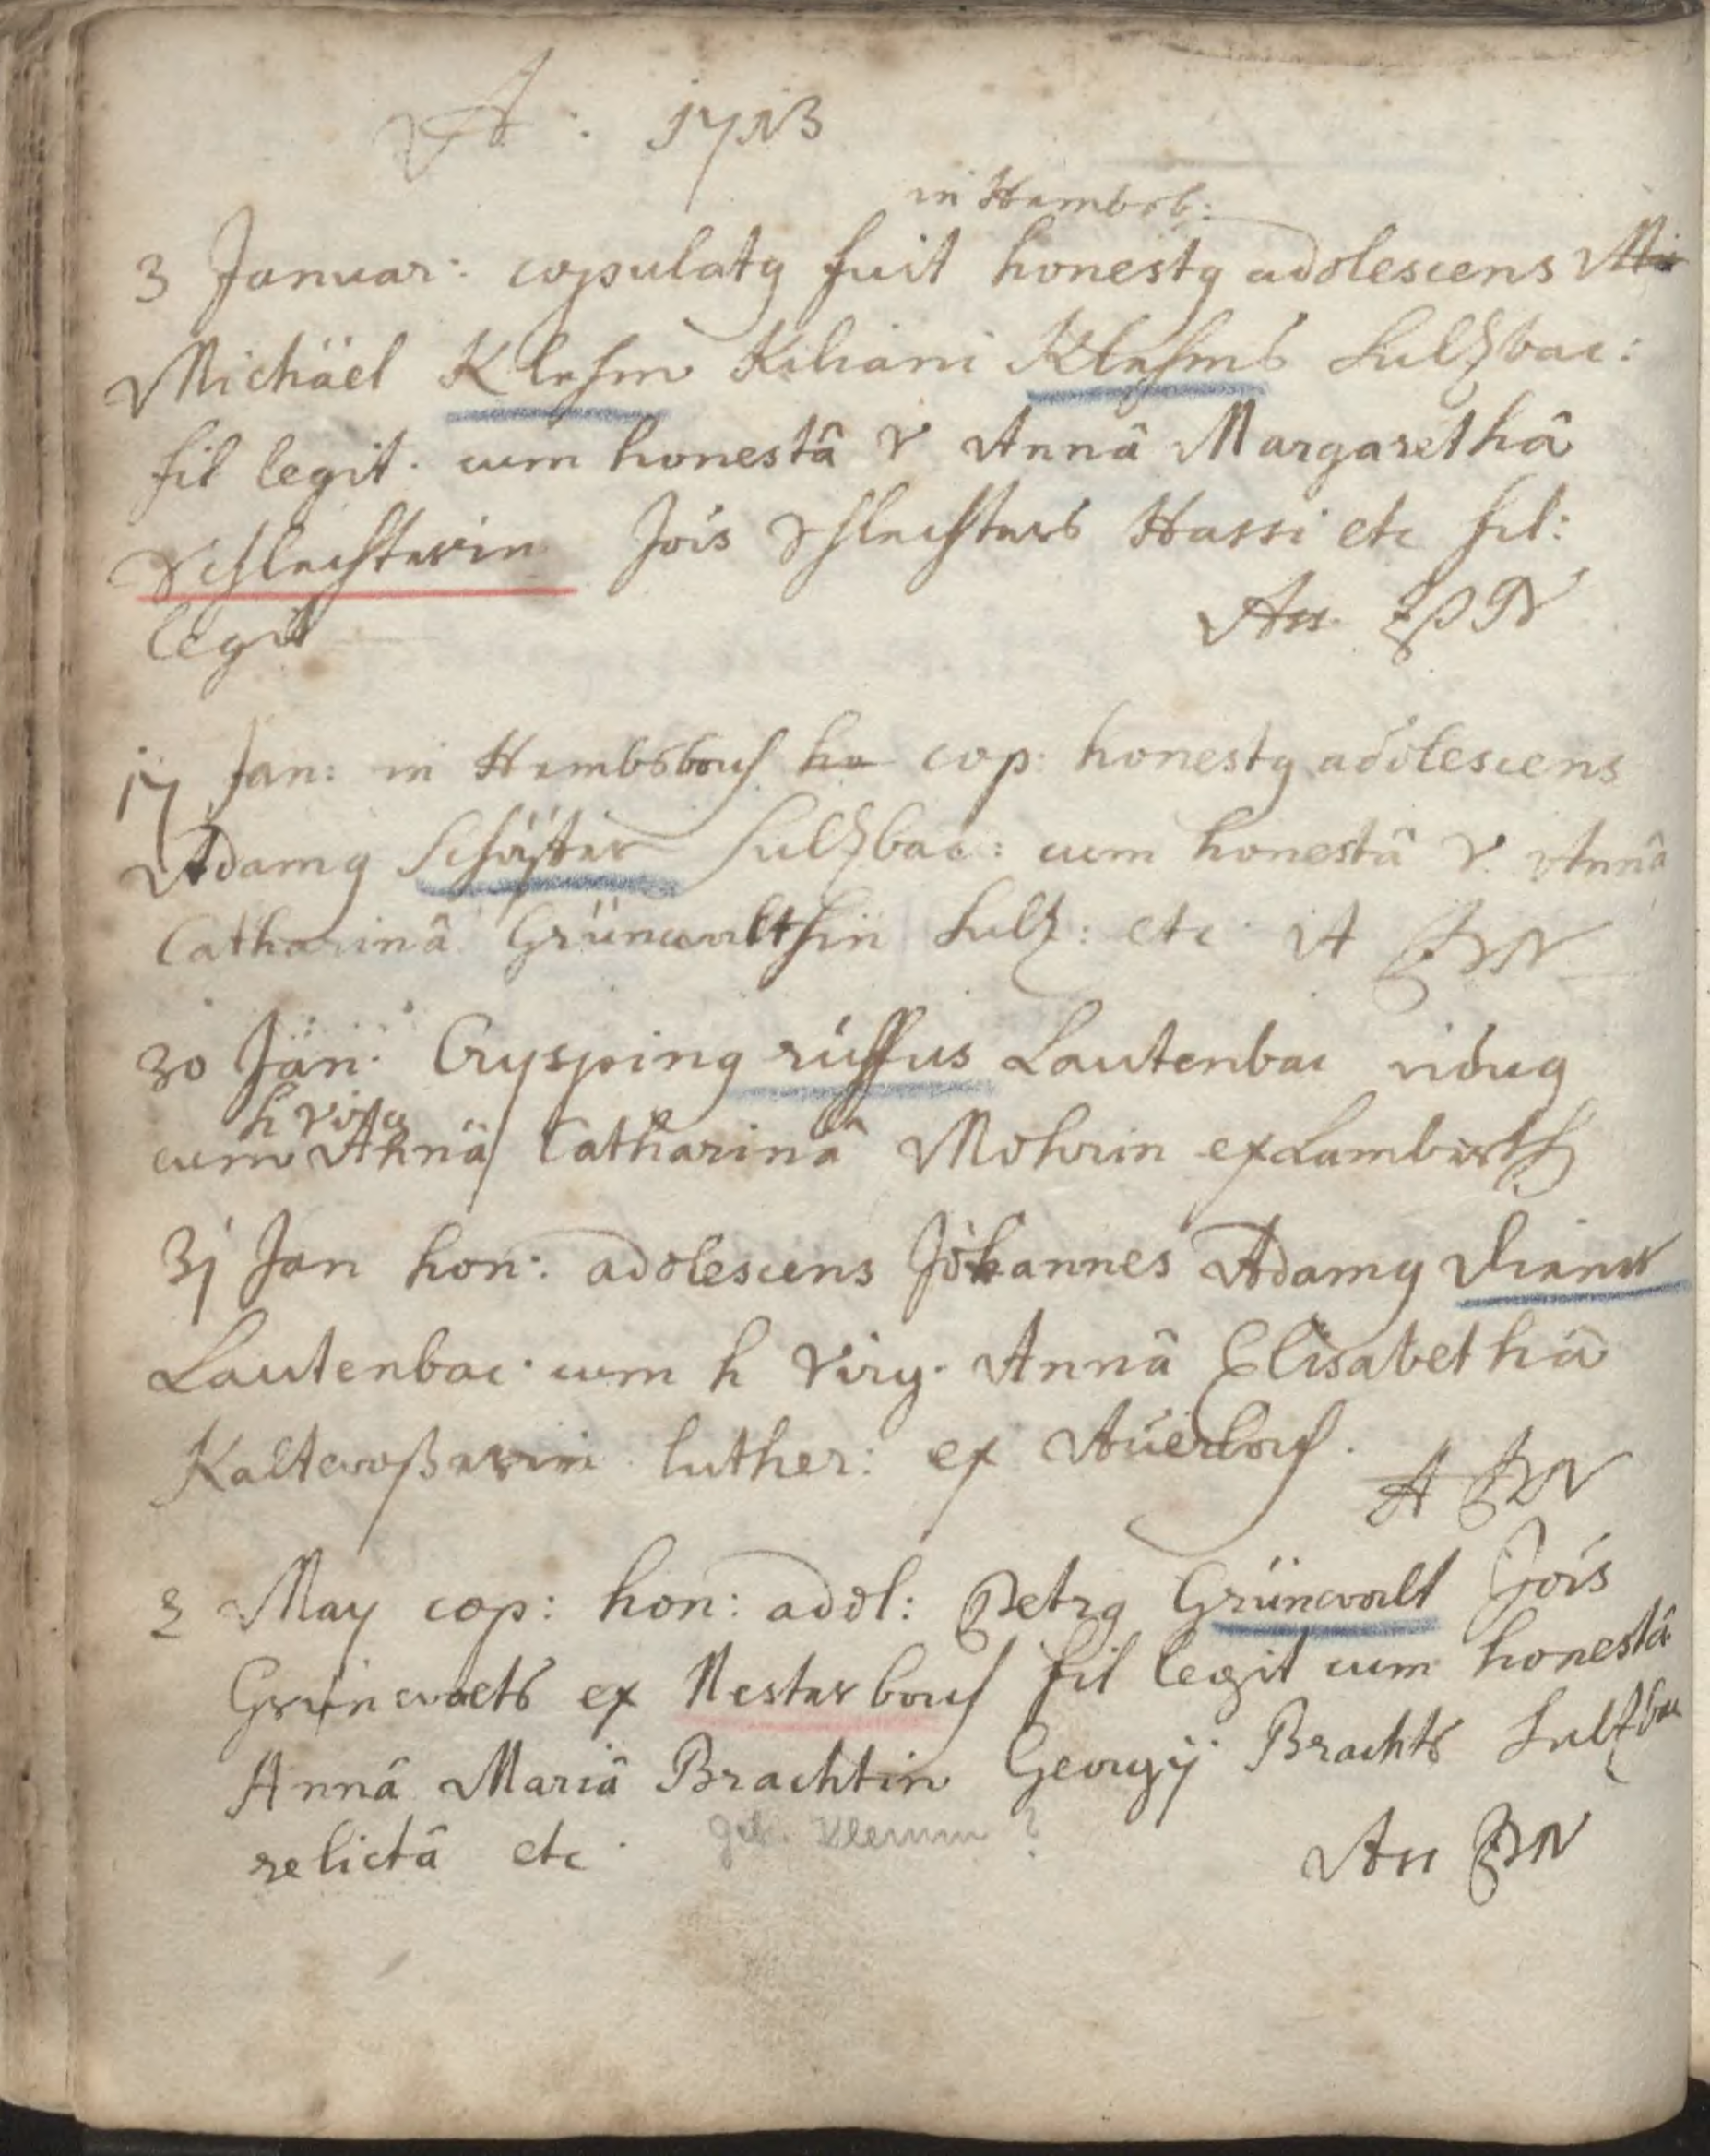 A: 1713
in Hembsb:
3 Januar: copulatꝯ fuit honestꝯ adolescens Mi
Michäel Klehm Kiliani Klehms Sulzbac:
fil legit. cum honestâ V Annâ Margarethâ
Schlechterin Jois Schlechters Hassi etc fil:
legit
17 Jan: in Hembsbach ho cop: honestꝯ adolescens
Adamꝯ Schäffer Sulzbac: cum honestâ V. Annâ
Catharinâ Grünwalthin Sulz: etc A
30 Jan: Cryspinꝯ ruffus Lautenbac viduꝯ
h vidua
cum Annâ Catharinâ Mohrin ex
31 Jan hon: adolescens Johannes Adamꝯ
Lautenbac. cum h Virg. Annâ Elisabethâ
luther: ex Auerbach. A
2 May cop: hon: adol: Petrꝯ Grünwalt Jois
Grünwalts ex Nesterbach fil legit cum honestâ
Annâ Mariâ Brachtin Georgij Brachts Sulzbac
relictâ etc. geb. Klemm ?